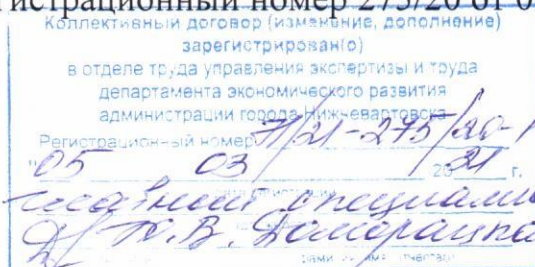 гистрационный номер 275/20 от 0
Коллективный договор (изменение, дополнение)
зарегистрирован(о)
в отделе труда управления экспертизы и труда
департамента экономического развития
администрации города Нижневартовска
Регистрационный номер 71/21-275/20-1
"05 03 2021 г.
главный специали
Ю.В.